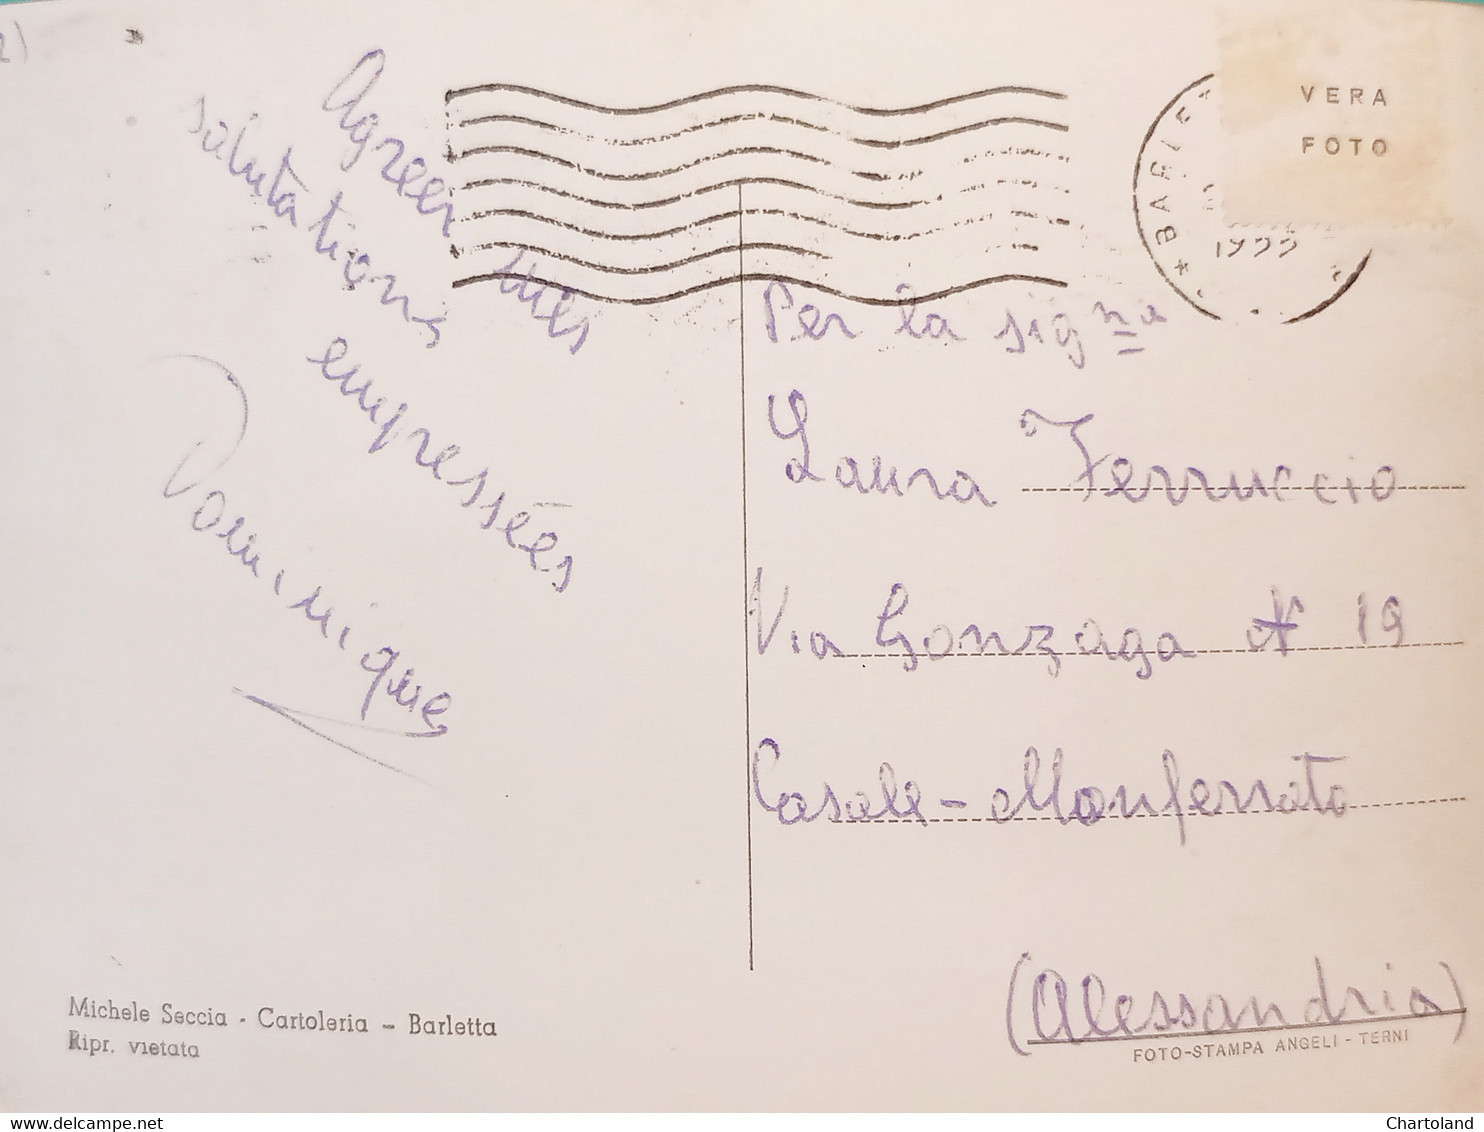 Agreer mes
salutations
empressées
Dominique
VERA
FOTO
Per la sigⁿᵃ
Laura Ferruccio
Via Gonzaga N 19
Casale - Monferrato
(Alessandria)
Michele Seccia - Cartoleria - Barletta
Ripr. vietata
FOTO-STAMPA ANGELI - TERNI
www.delcampe.net
Chartoland